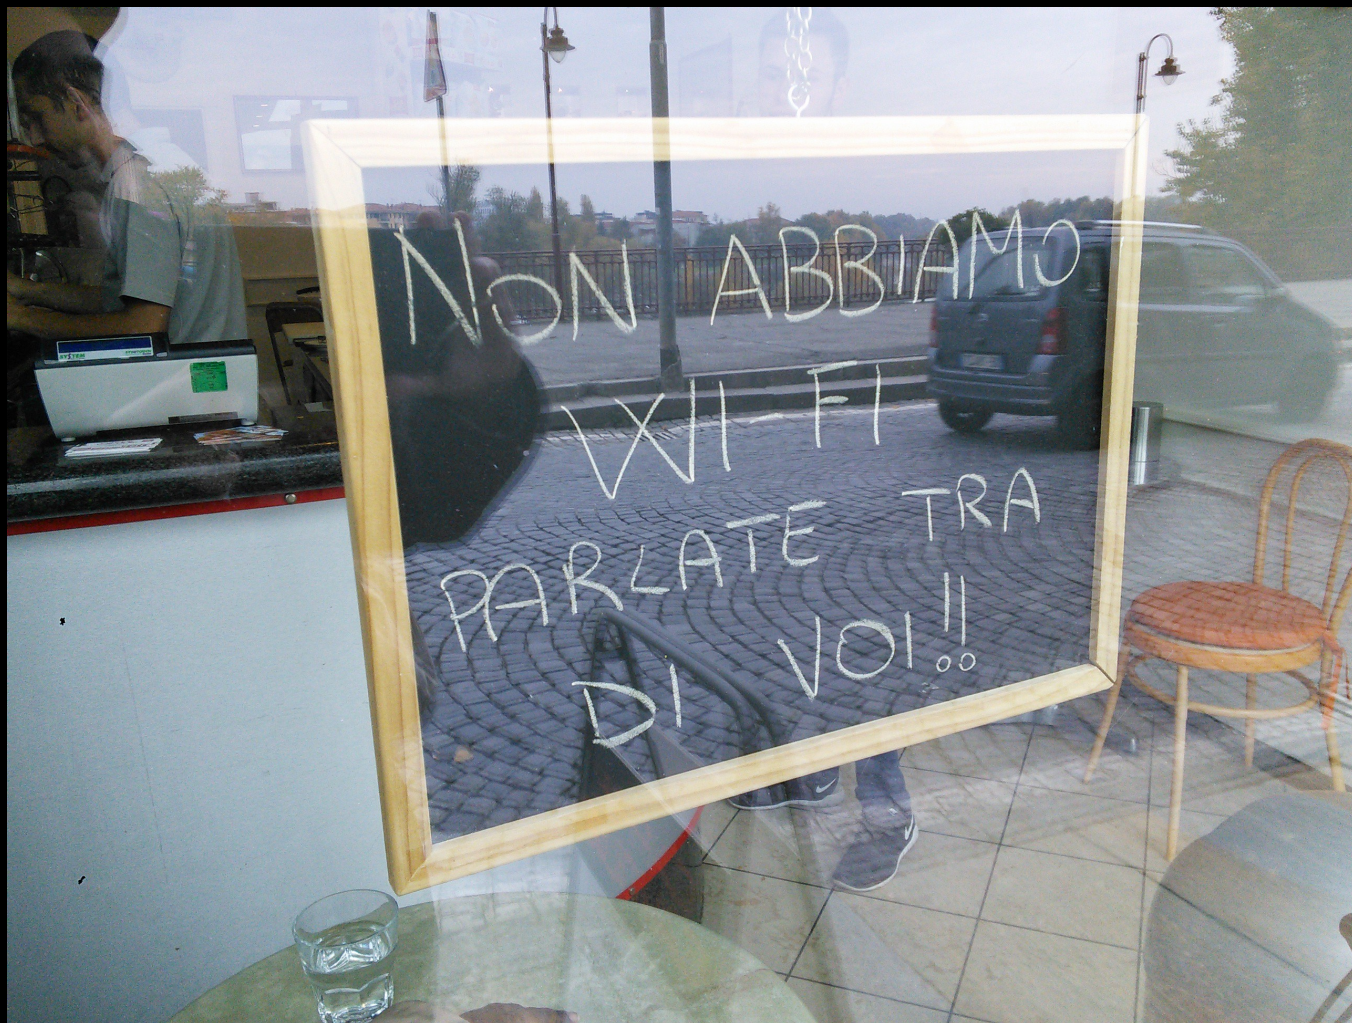 NON ABBIAMO
WI-FI
PARLATE TRA
DI VOI!!
SYSTEM